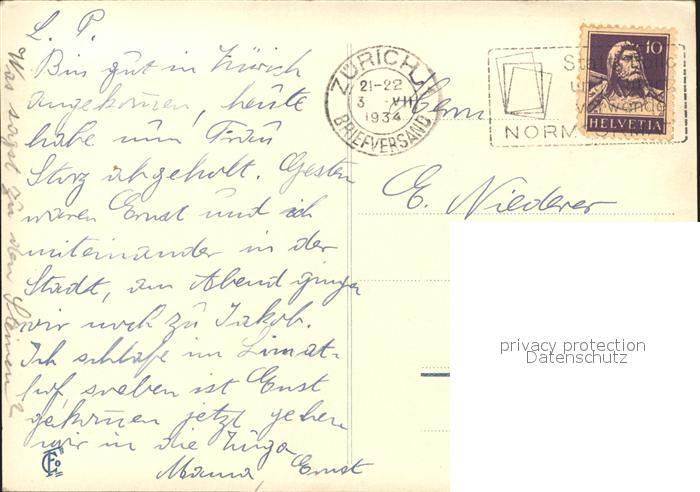 L. P.
Bin gut in Zürich
angekommen, heute
habe nun Frau
Storz abgeholt. Gestern
waren Ernst und ich
miteinander in der
Stadt, am Abend gingen
wir noch zu Jakob.
Ich schlafe im Limat-
hof, soeben ist Ernst
gekommen jetzt gehen
wir in die
Mama, Ernst
Was sagst zu den Steinen?
ZÜRICH 1
21-22
3 VIII
1934
BRIEFVERSAND
NORM
10
HELVETIA
Herrn
E. Niederer
privacy protection
Datenschutz